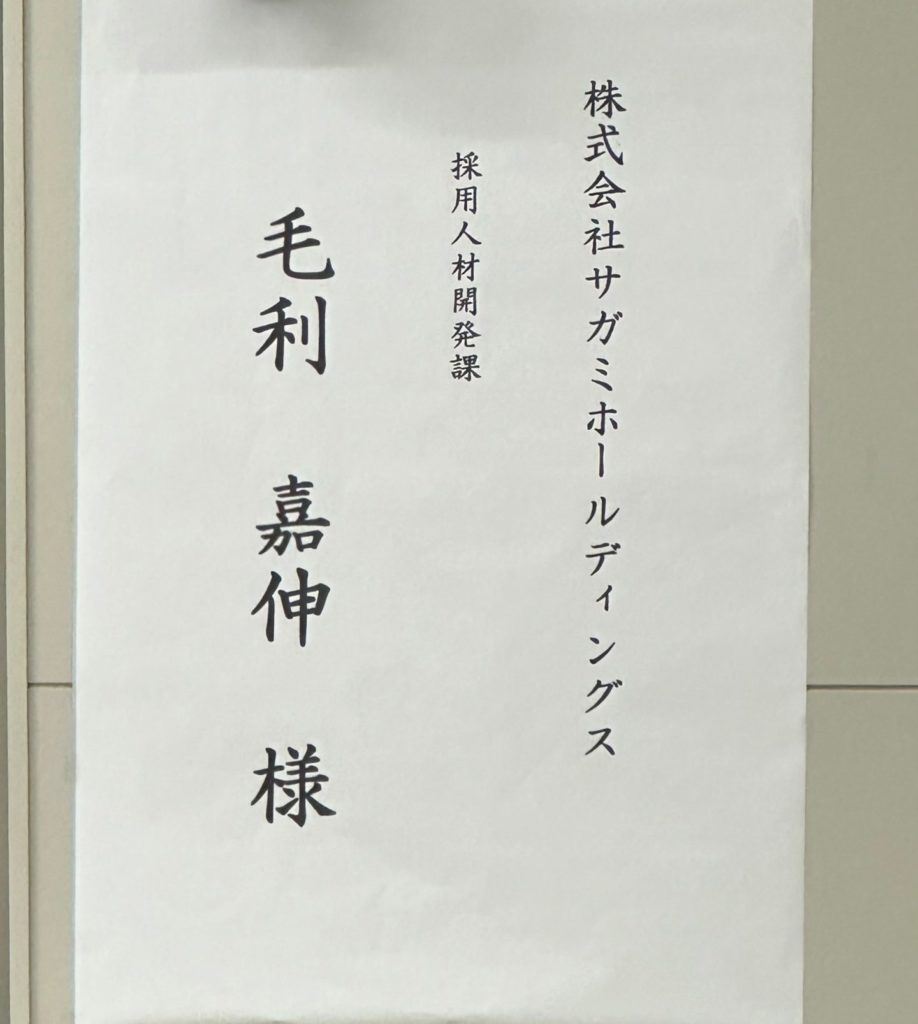 株式会社サガミホールディングス
採用人材開発課
毛利 嘉伸 様